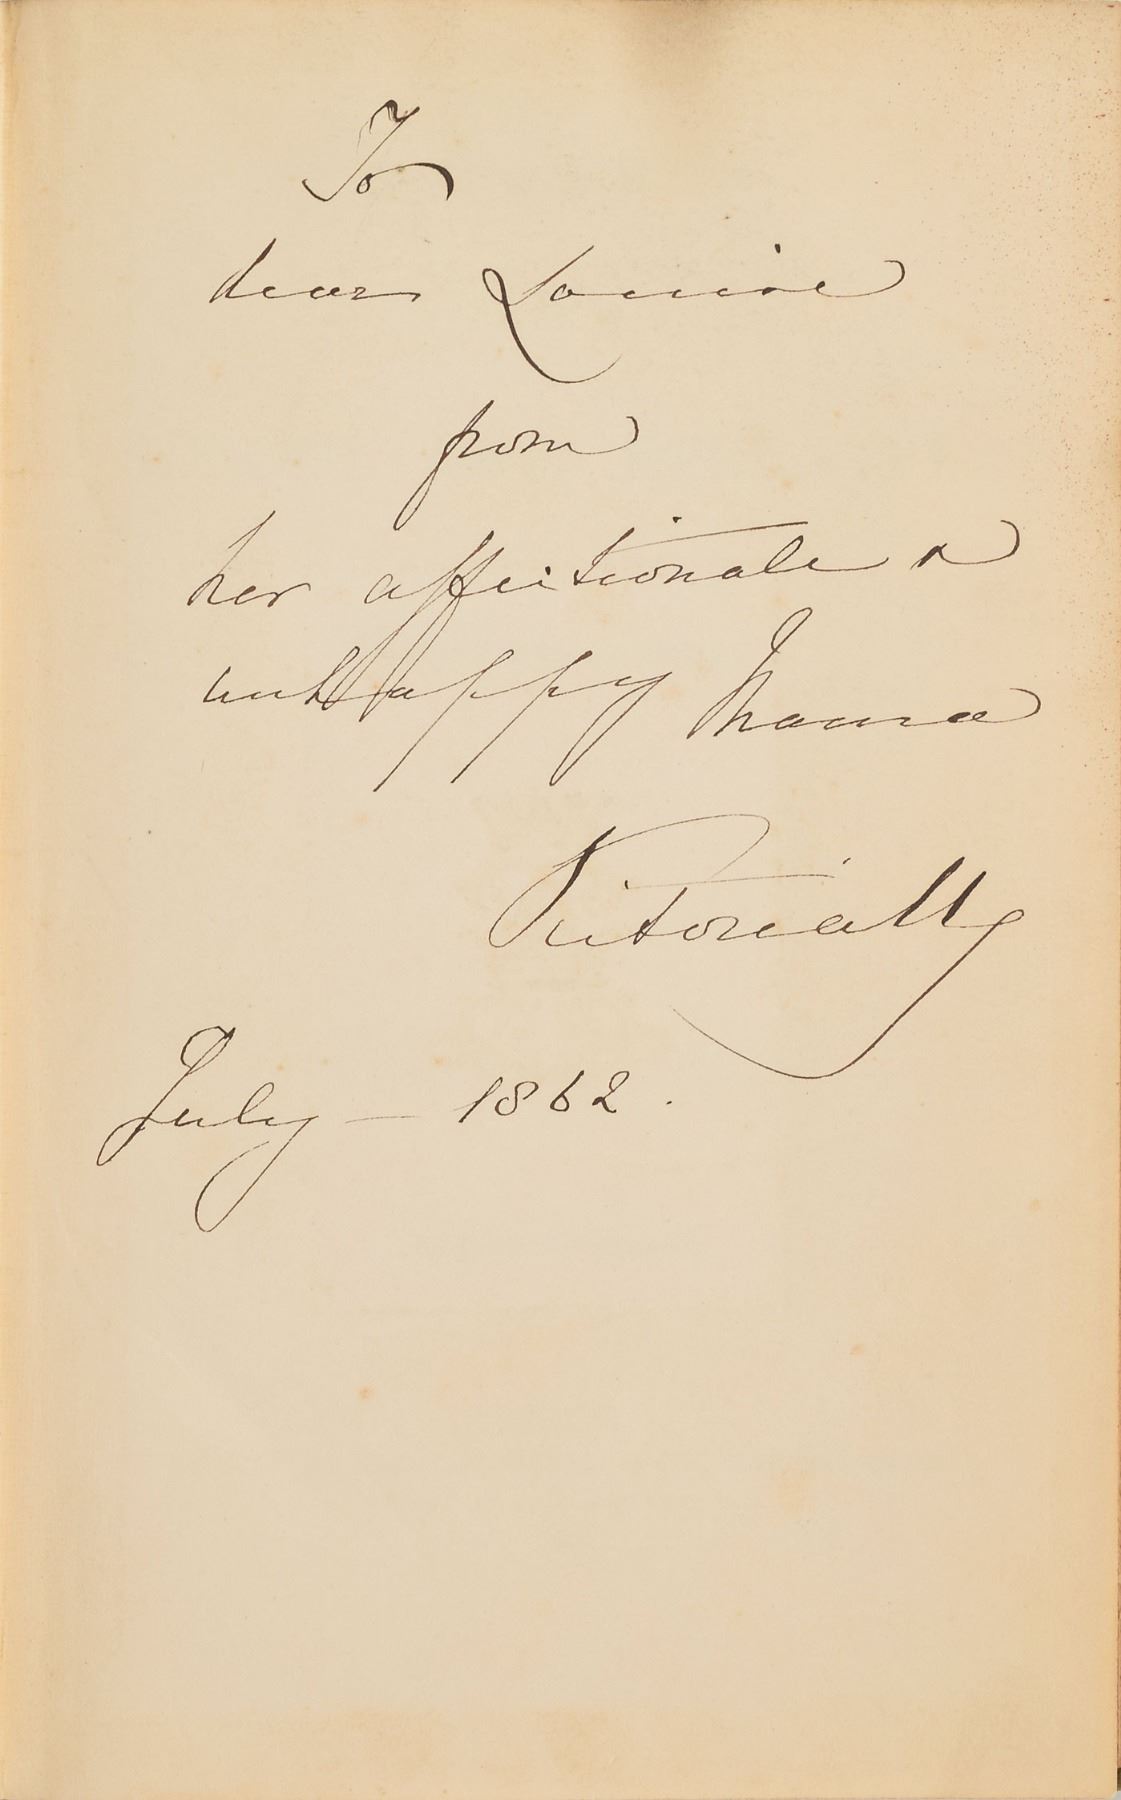 To
dear Louise
from
her affectionate &
unhappy Mama
Victoria R
July – 1862.